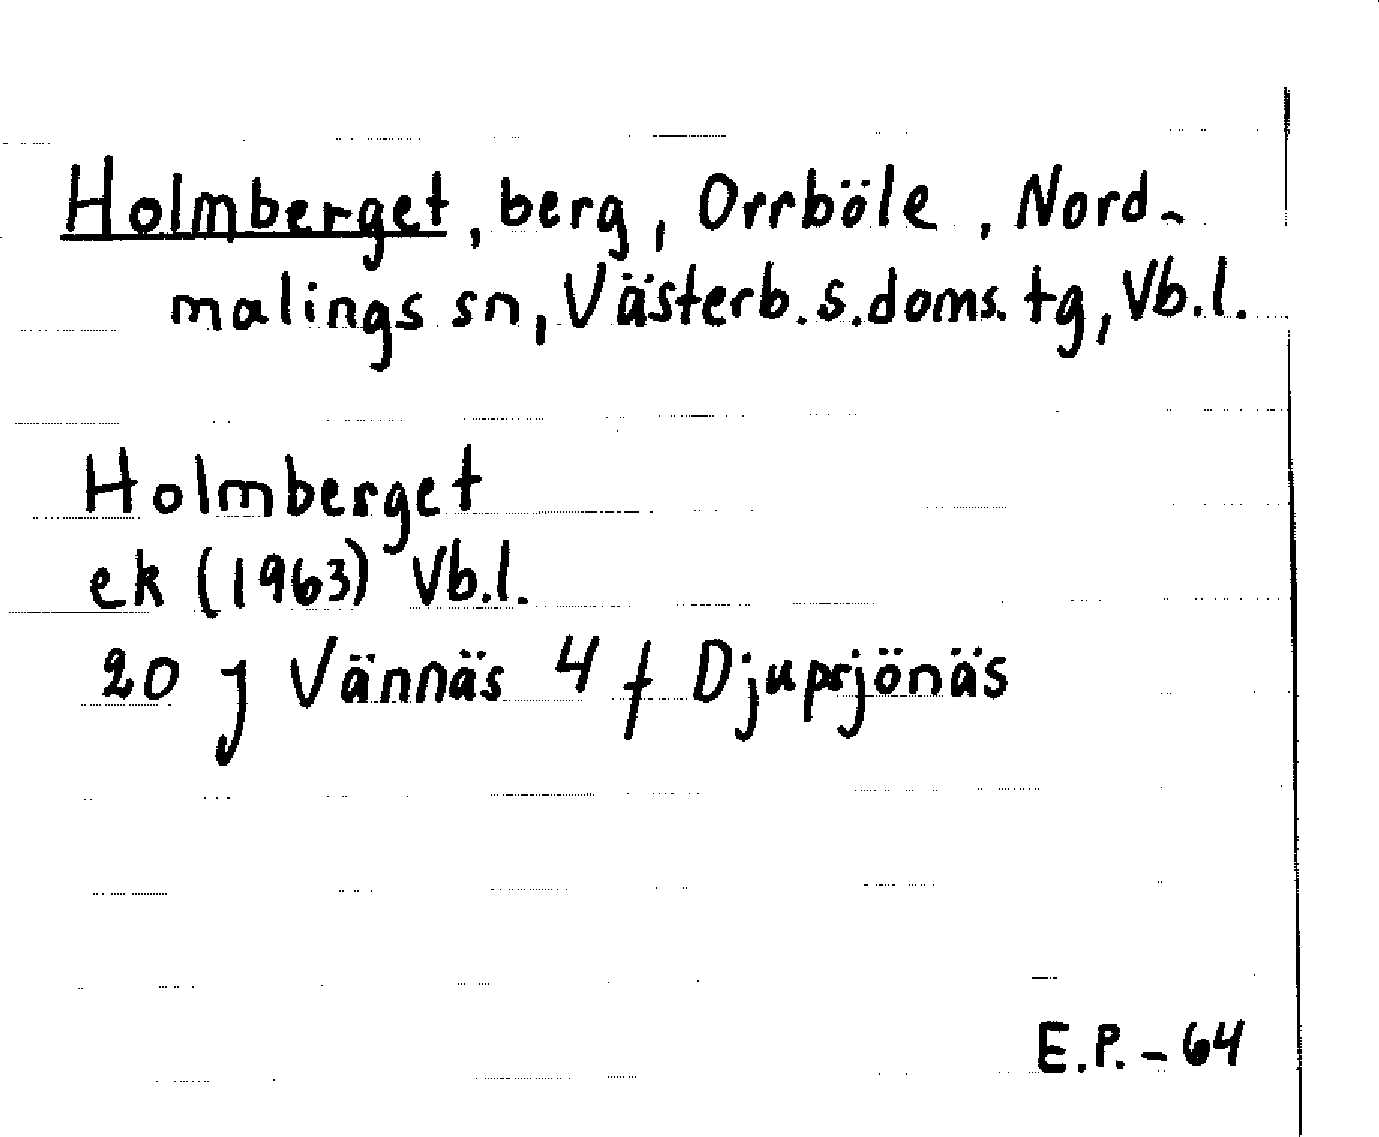 Holmberget, berg, Orrböle, Nord-
malings sn, Västerb.s.doms.tg, Vb.l.
Holmberget
ek (1963) Vb.l.
20 J Vännäs 4 f Djupsjönäs
E.P. - 64